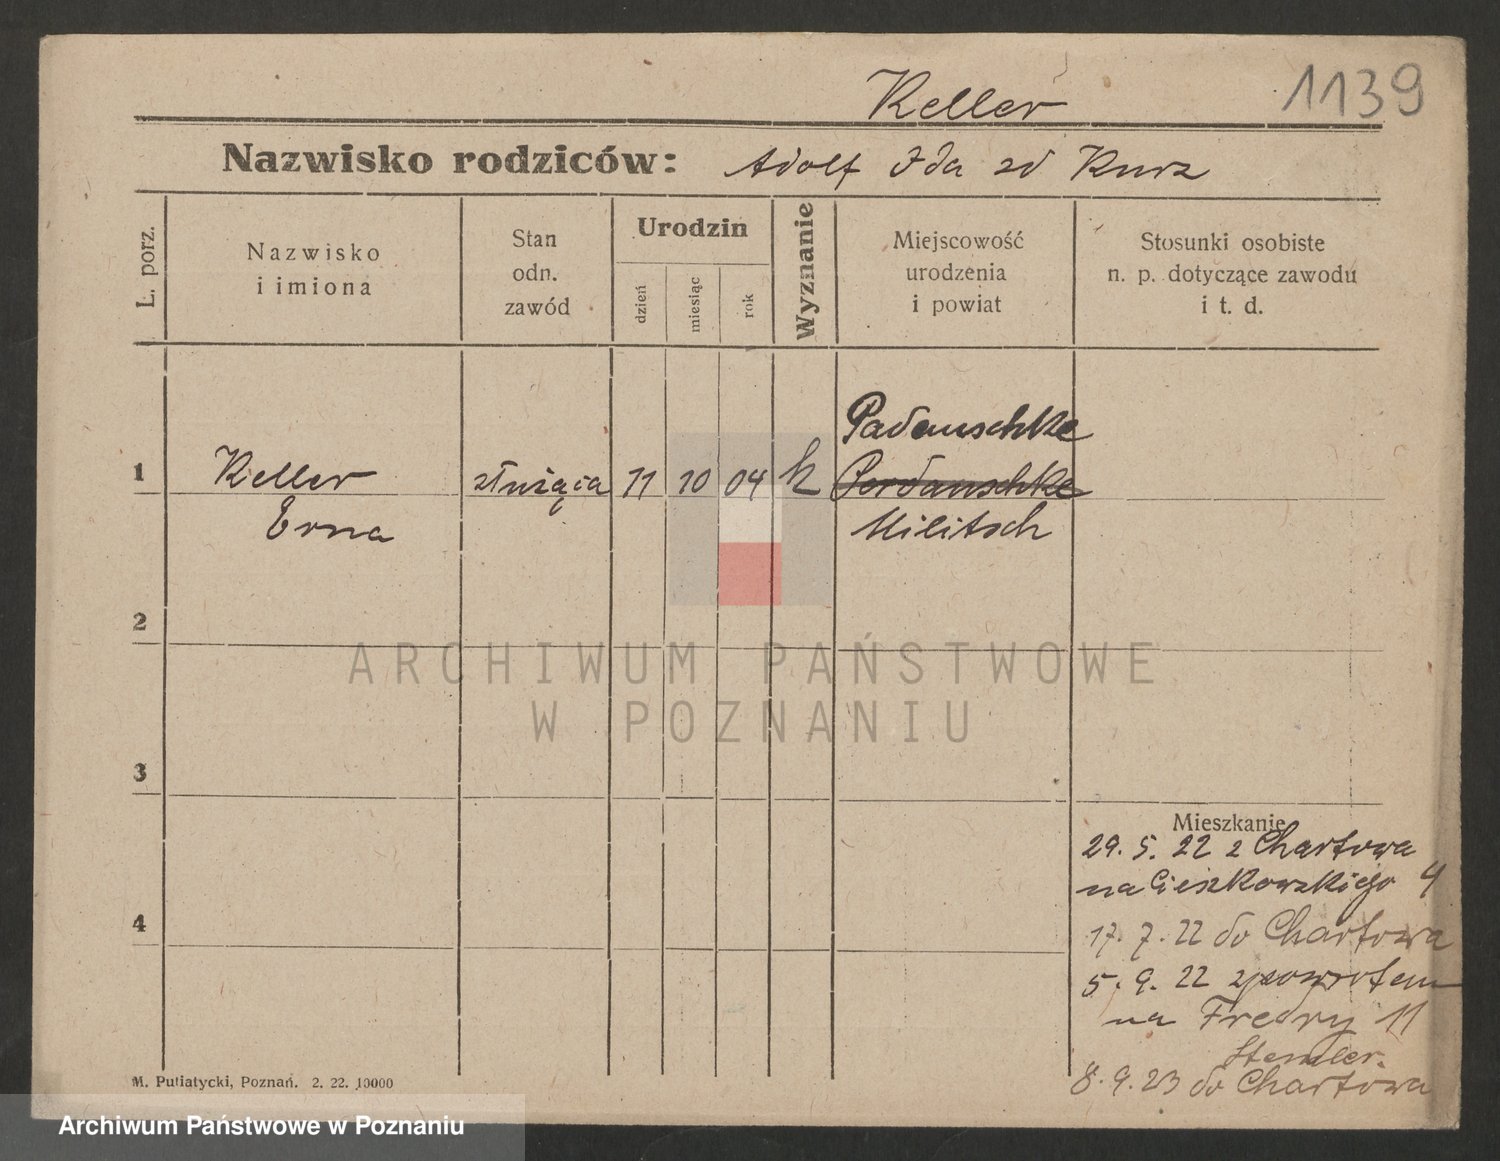 Keller
1139
Nazwisko rodziców: Adolf Ida zd Kurz
L. porz.
Nazwisko
i imiona
Stan
odn.
zawód
Urodzin
dzień
miesiąc
rok
Wyznanie
Miejscowość
urodzenia
i powiat
Stosunki osobiste
n. p. dotyczące zawodu
i t. d.
Padauschke
1 Keller służąca 11 10 04 k Pordauschke
Erna Militsch
2
ARCHIWUM PAŃSTWOWE
W POZNANIU
3
Mieszkanie
29. 5. 22 z Chartowa
na Cieszkowskiego 4
4
17. 7. 22 do Chartowa
5. 9. 22 zpowrotem
na Fredry 11
Stemler.
8. 9. 23 do Chartowa
M. Putiatycki, Poznań. 2. 22. 10000
Archiwum Państwowe w Poznaniu